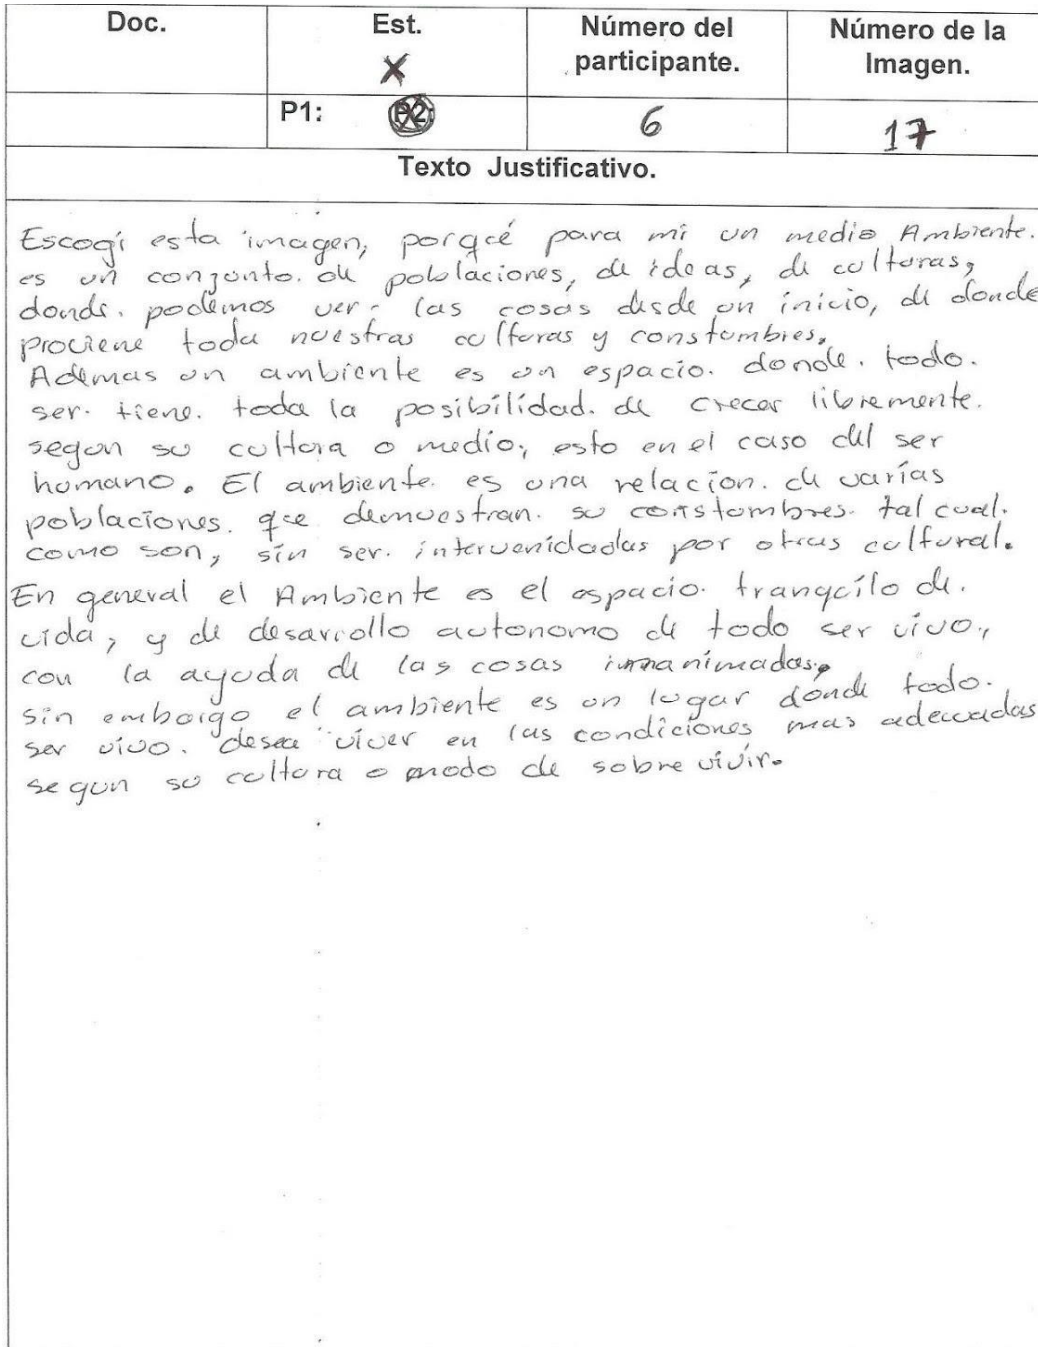 Doc. Est. Número del participante. Número de la Imagen.
X
P1: P2: 6 17
Texto Justificativo.
Escogí esta imagen, porqué para mi un medio Ambiente.
es un conjunto. de poblaciones, de ideas, de culturas,
donde. podemos ver. las cosas desde un inicio, de donde
proviene toda nuestras culturas y constumbres.
Ademas un ambiente es un espacio. donde. todo.
ser. tiene. toda la posibilidad. de crecer libremente.
segun su cultura o medio, esto en el caso del ser
humano. El ambiente. es una relacion. de varías
poblaciones. que demuestran. su constumbres. tal cual.
como son, sin ser. intervenidadas por otras cultural.
En general el Ambiente es el espacio. tranquilo de.
vida, y de desarrollo autonomo de todo ser vivo,
con la ayuda de las cosas inmanimadas.
sin embargo el ambiente es un lugar donde todo.
ser vivo. desea viver en las condiciones mas adecuadas
segun su cultura o modo de sobre vivir.